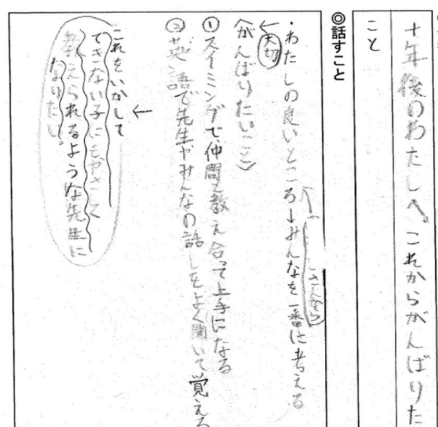 十年後のわたしへ。これからがんばりた
こと
◎話すこと
・わたしの良いところ→みんなを一番に考える
(だから)
大切
〈がんばりたいこと〉
①スイミングで仲間と教え合って上手になる
②英語で先生やみんなの話しをよく聞いて覚える
これをいかして
できない子にもやさしく
教えられるような先生に
なりたい。